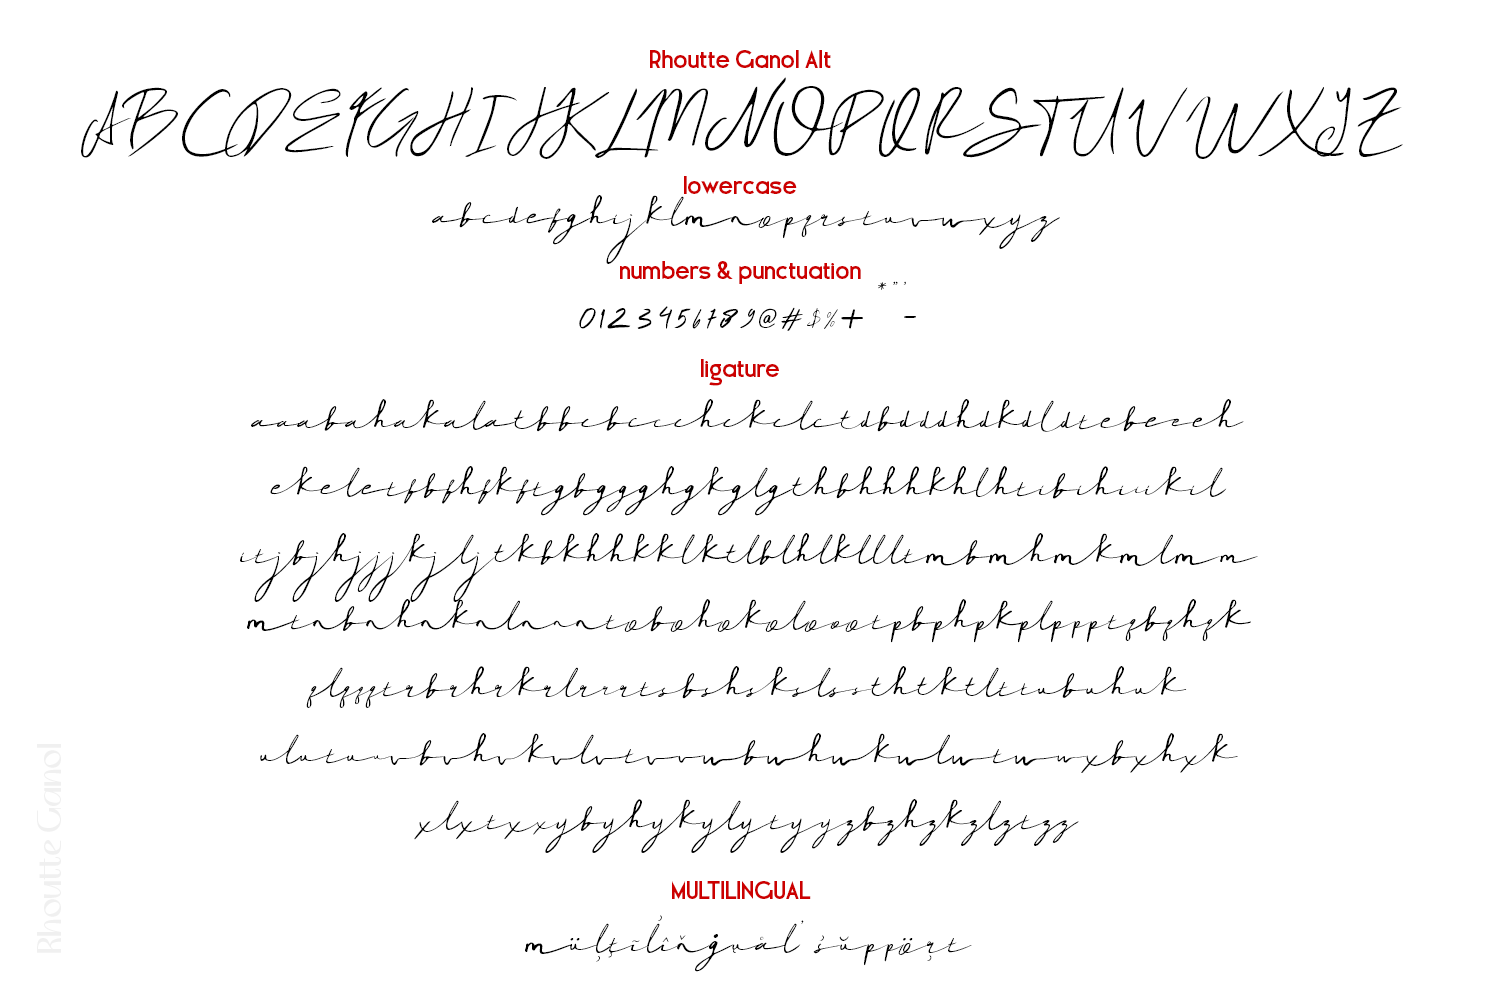 Rhoutte Ganol Alt
ABCDEFGHIJKLMNOPQRSTUVWXYZ
lowercase
abcdefghijklmnopqrstuvwxyz
numbers & punctuation
*"'
0123456789@#$%+ -
ligature
aaabahakalatbbcbccchckclctdbdddhdkdldtebeeeh
ekeletfbfhfkftgbggghgkglgthbhhhkhlhtibihiiikil
itjbjhjjjkjljtkbkhkkklktlblhlklllt​mbmhmkmlmm
mtnbnhnknlnnntobohokoloootpbphpkplppptqbqhqk
qlqqqtrbrhrkrlrrrtsbshskslssthtktlttubuhuk
ulutuuvbvhvkvlvtvvwbwhwkwlwtwwxbxhxk
xlxtxxybyhykylytyyzbzhzkzlztzz
MULTILINGUAL
Rhoutte Ganol